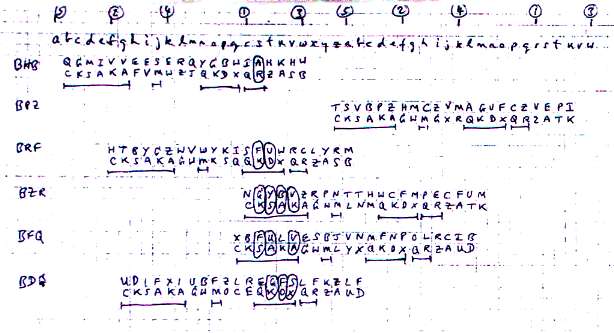 ⑤ ② ④ ① ③ ⑤ ② ④ ① ③
abcdefghijklmnopqrstuvwxyzabcdefghijklmnopqrstuvw...
BHB QGMIVVEESERQYGBWSAHKHW
CKSAKAFVMWZJQKDXQRZASB
BPZ TSVBPZHMCZVMAGUFCZVEPI
CKSAKAGWMGXRQKDXQRZATK
BRF HTBYGZWVWYKISFUWRCLYRM
CKSAKAGWMKSQQKDXQRZASB
BZR NGYBVZRPNTTHWCFMPECFUM
CKSAKAGWMLNMQKDXQRZATK
BFQ XBFULVESBJVNMFNPOLRCIB
CKSAKAGWMLYXQKDXQRZAUD
BDQ UDIFXIUBFZLREGFSLFKZLF
CKSAKAGWMOCEQKDXQRZAUD